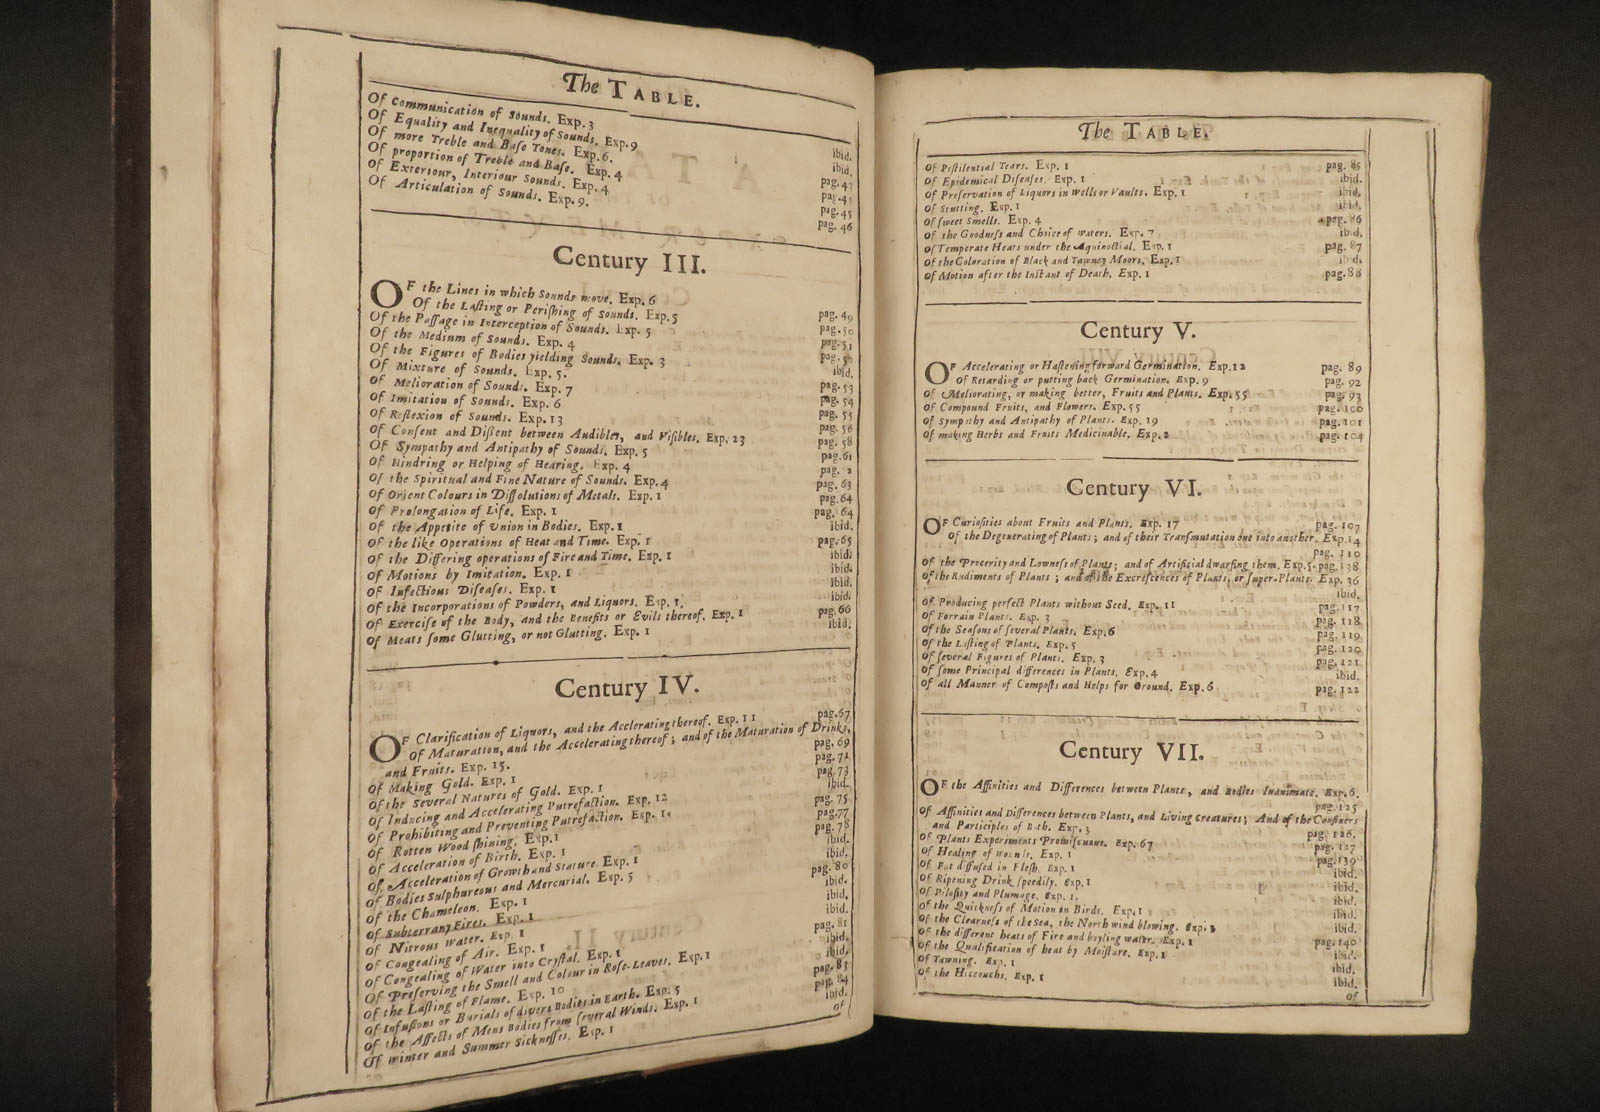 The TABLE.
Of communication of Sounds. Exp. 3 ibid.
Of Equality and Inequality of Sounds. Exp. 9 ibid.
Of more Treble and Base Tones. Exp. 6. pag. 43
Of proportion of Treble and Base. Exp. 4
Of Exteriour, Interiour Sounds. Exp. 4 pag. 45
Of Articulation of Sounds. Exp. 9. pag. 46
Century III.
OF the Lines in which Sounds move. Exp. 6 pag. 49
Of the Lasting or Perishing of Sounds. Exp. 5 pag. 50
Of the Passage in Interception of Sounds. Exp. 5 pag. 51
Of the Medium of Sounds. Exp. 4
Of the Figures of Bodies yielding Sounds. Exp. 3 ibid.
Of Mixture of Sounds. Exp. 5. pag. 53
Of Melioration of Sounds. Exp. 7 pag. 54
Of Imitation of Sounds. Exp. 6 pag. 55
Of Reflexion of Sounds. Exp. 13 pag. 56
Of Consent and Dissent between Audibles, and Visibles. Exp. 23 pag. 58
Of Sympathy and Antipathy of Sounds. Exp. 5 pag. 61
Of Hindring or Helping of Hearing. Exp. 4 pag.
Of the Spiritual and Fine Nature of Sounds. Exp. 4 pag. 63
Of Orient Colours in Dissolutions of Metals. Exp. 1 pag. 64
Of Prolongation of Life. Exp. 1 pag. 64
Of the Appetite of Union in Bodies. Exp. 1 ibid.
Of the like Operations of Heat and Time. Exp. 1 pag. 65
Of the Differing operations of Fire and Time. Exp. 1 ibid.
Of Motions by Imitation. Exp. 1 ibid.
Of Infectious Diseases. Exp. 1 ibid.
Of the Incorporations of Powders, and Liquors. Exp. 1. ibid.
Of Exercise of the Body, and the Benefits or Evils thereof. Exp. 1 pag. 66
Of Meats some Glutting, or not Glutting. Exp. 1 ibid.
Century IV.
OF Clarification of Liquors, and the Acclerating thereof. Exp. 11 pag. 67
Of Maturation, and the Accelerating thereof; and of the Maturation of Drinks,
and Fruits. Exp. 15. pag. 69
Of Making Gold. Exp. 1 pag. 71
Of the Several Natures of Gold. Exp. 1 pag. 73
Of Inducing and Accelerating Putrefaction. Exp. 12 ibid.
Of Prohibiting and Preventing Putrefaction. Exp. pag. 75
Of Rotten Wood shining. Exp. 1 pag. 77
Of Acceleration of Birth. Exp. 1 pag. 78
Of Acceleration of Growth and Stature. Exp. 1 ibid.
Of Bodies Sulphureous and Mercurial. Exp. 5 ibid.
Of the Chameleon. Exp. 1 pag. 80
Of Subterrany Fires. Exp. 1 ibid.
Of Nitrous Water. Exp. 1 ibid.
Of Congealing of Air. Exp. 1 pag. 81
Of Congealing of Water into Crystal. Exp. 1 ibid.
Of Preserving the Smell and Colour in Rose-Leaves. Exp. 1 ibid.
Of the Lasting of Flame. Exp. 10 pag. 83
Of Infusions or Burials of divers Bodies in Earth. Exp. 5 pag. 84
Of the Affects of Mens Bodies from several Winds. Exp. 1 ibid.
Of Winter and Summer Sicknesses. Exp. 1
Of
The TABLE.
Of Pestilential Years. Exp. 1 pag. 85
Of Epidemical Diseases. Exp. 1 ibid.
Of Preservation of Liquors in Wells or Vaults. Exp. 1 ibid.
Of Stutting. Exp. 1 ibid.
Of sweet Smells. Exp. 4 pag. 86
Of the Goodness and Choice of Waters. Exp. 7 ibid.
Of Temperate Heats under the Aquinoctial. Exp. 1 pag. 87
Of the Coloration of Black and Tawney Moors. Exp. 1 ibid.
Of Motion after the Instant of Death. Exp. 1 pag. 88
Century V.
OF Accelerating or Hastening forward Germination. Exp. 12 pag. 89
Of Retarding or putting back Germination. Exp. 9 pag. 92
Of Meliorating, or making better, Fruits and Plants. Exp. 55 pag. 93
Of Compound Fruits, and Flowers. Exp. 55 pag. 100
Of Sympathy and Antipathy of Plants. Exp. 19 pag. 101
Of making Herbs and Fruits Medicinable. Exp. 2 pag. 104
Century VI.
OF Curiosities about Fruits and Plants. Exp. 17 pag. 107
Of the Degenerating of Plants; and of their Transmutation one into another. Exp. 14
pag. 110
Of the Procerity and Lowness of Plants; and of Artificial dwarfing them, Exp. 5. pag. 138
Of the Rudiments of Plants; and of the Excrescences of Plants, or Super-Plants. Exp. 36
ibid.
Of Producing perfect Plants without Seed. Exp. 11 pag. 117
Of Forrain Plants. Exp. 3 pag. 118
Of the Seasons of several Plants. Exp. 6 pag. 119
Of the Lasting of Plants. Exp. 5 pag. 120
Of several Figures of Plants. Exp. 3 pag. 121
Of some Principal differences in Plants. Exp. 4 ibid.
Of all Manner of Composts and Helps for Ground. Exp. 6 pag. 122
Century VII.
OF the Affinities and Differences between Plants, and Bodies Inanimate. Exp. 6.
pag. 125
Of Affinities and Differences between Plants, and Living Creatures; And of the Confiners
and Participles of Both. Exp. 3 pag. 126.
Of Plants Experiments Promiscuous. Exp. 67 pag. 127
Of Healing of Wounds. Exp. 1 pag. 139
Of Fat diffused in Flesh. Exp. 1 ibid.
Of Ripening Drink speedily. Exp. 1 ibid.
Of Pilosity and Plumage. Exp. 1. ibid.
Of the Quickness of Motion in Birds. Exp. 1 ibid.
Of the Clearness of the Sea, the North wind blowing. Exp. 1 ibid.
Of the different heats of Fire and boyling water. Exp. 1 pag. 140
Of the Qualification of heat by Moisture. Exp. 1 ibid.
Of Yawning. Exp. 1 ibid.
Of the Hiccough. Exp. 1 ibid.
Of